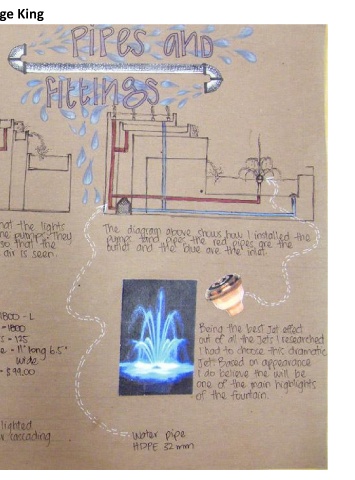 ge King
Pipes and
Fittings
hat the lights
ne pumps. They
so that the
air is seen.
The diagram above shows how I installed the
pumps and pipes the red pipes are the
outlet and the blue are the inlet.
1800 - L
= 1800
s - 125
e - 11" long 6.5"
wide
- $ 99.00
Being the best Jet effect
out of all the Jets I researched
I had to choose this dramatic
Jet. Based on appearance
I do believe the will be
one of the main highlights
of the fountain.
lighted
r cascading
Water pipe
HDPE 32mm